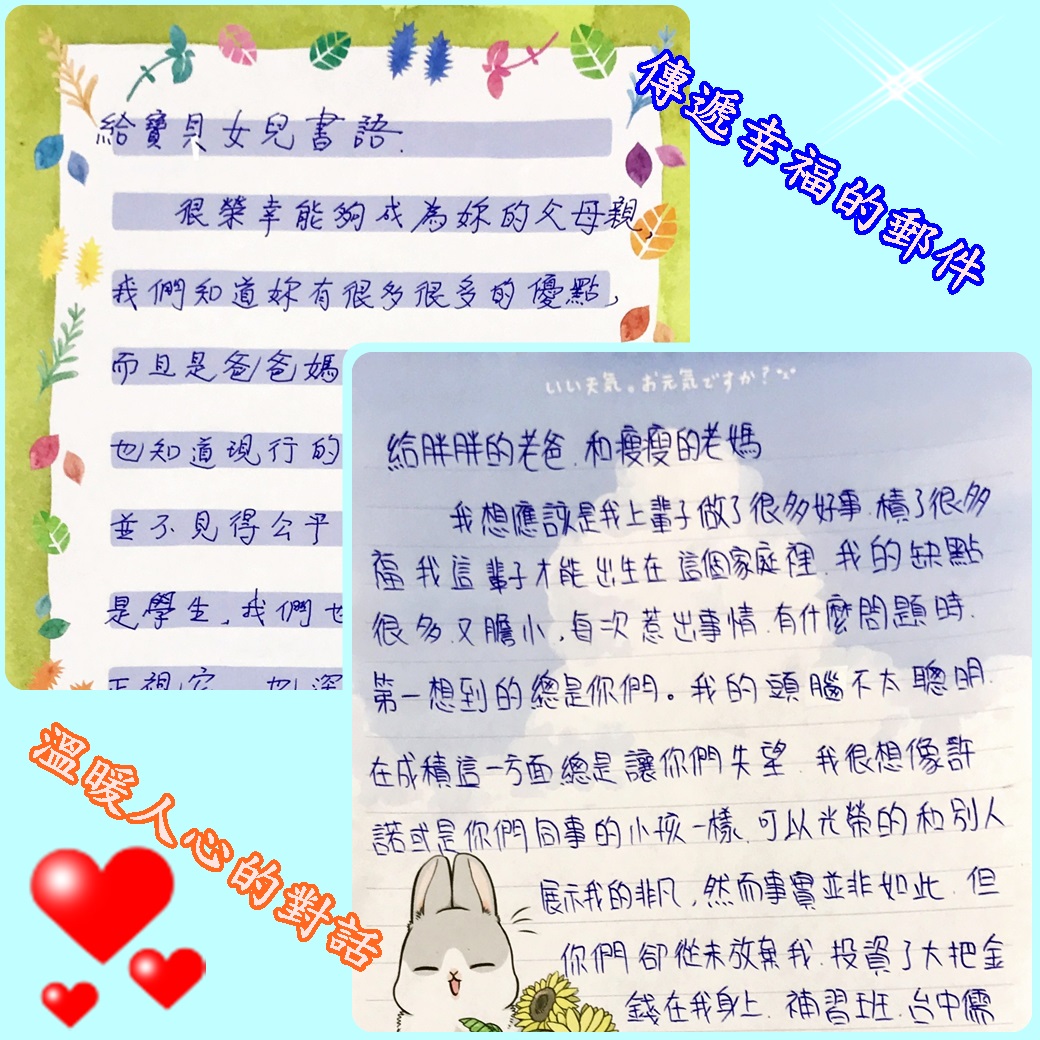 傳遞幸福的郵件
給寶貝女兒書語.
很榮幸能夠成為妳的父母親,
我們知道妳有很多很多的優點,
而且是爸爸媽
也知道現行的
並不見得公平
是學生,我們也
正視它 也深
いい天気。お元気ですか?
給胖胖的老爸.和瘦瘦的老媽
我想應該是我上輩子做了很多好事.積了很多
福.我這輩子才能出生在這個家庭裡.我的缺點
很多.又膽小,每次惹出事情.有什麼問題時.
第一想到的總是你們。我的頭腦不太聰明.
在成積這一方面總是讓你們失望.我很想像許
諾或是你們同事的小孩一樣.可以光榮的和別人
展示我的非凡,然而事實並非如此.但
你們卻從未放棄我.投資了大把金
錢在我身上.補習班.台中儒
溫暖人心的對話